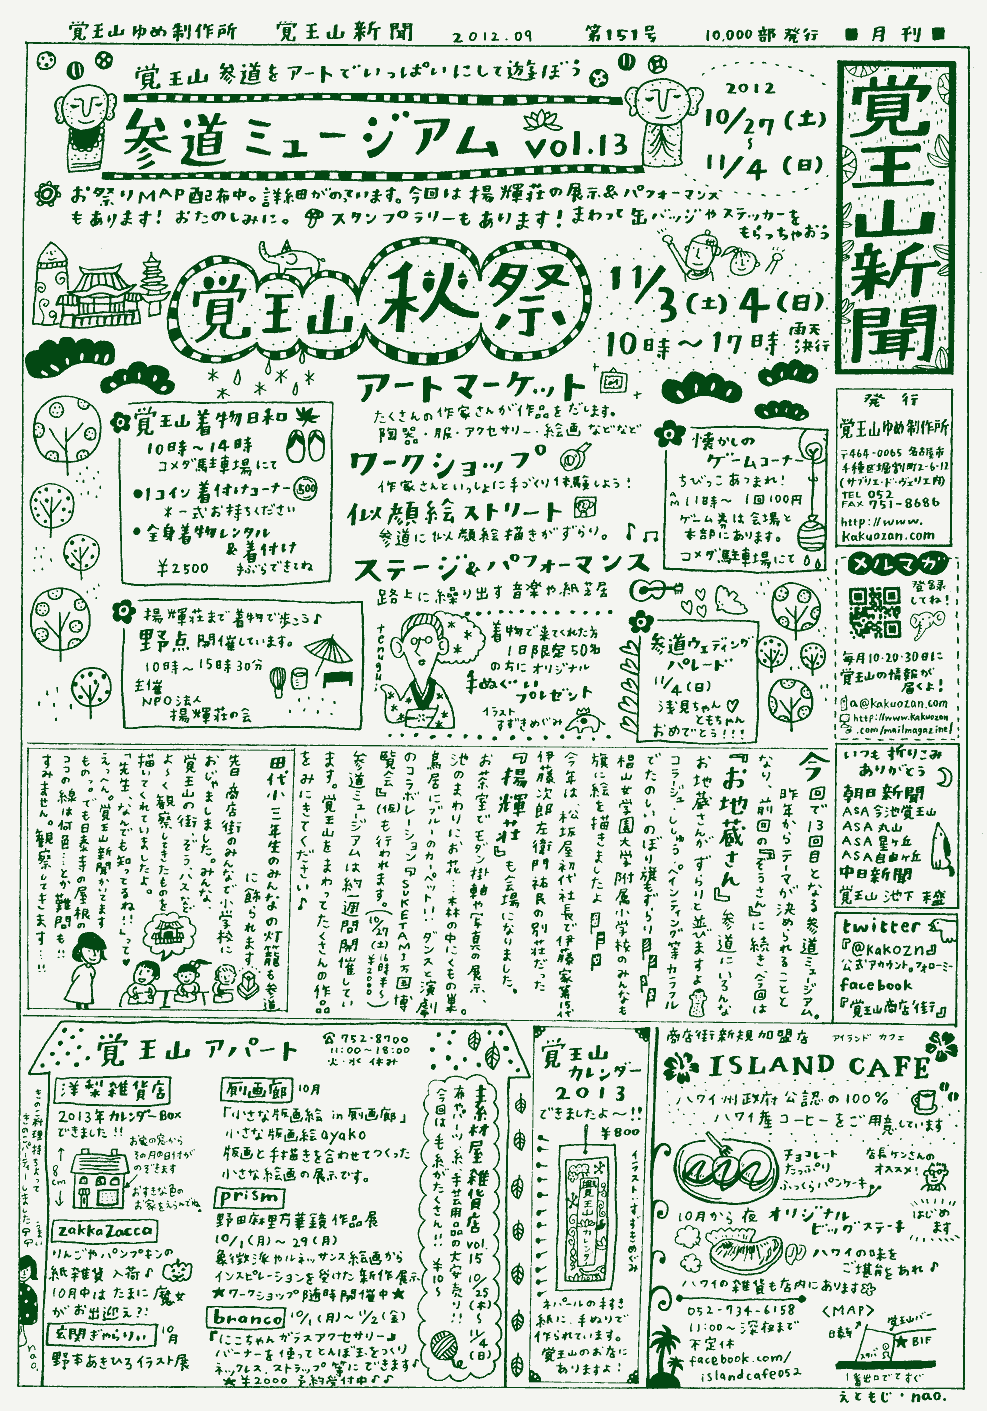 覚王山ゆめ制作所 覚王山新聞 2012.09 第151号 10,000部発行 ■月刊■
覚王山新聞
覚王山 参道をアートでいっぱいにして遊ぼう
参道ミュージアム vol.13
2012
10/27(土)
〜
11/4(日)
お祭りMAP配布中。詳細がのっています。今回は揚輝荘の展示&パフォーマンス
もあります!おたのしみに。スタンプラリーもあります!まわって缶バッジやステッカーを
もらっちゃおう
覚王山 秋祭
11/3(土)4(日)
10時〜17時 雨天決行
アートマーケット
たくさんの作家さんが作品をだします。
陶器・服・アクセサリー・絵画 などなど
ワークショップ
作家さんといっしょに手づくり体験しよう!
似顔絵ストリート
参道に似顔絵描きがずらり。
ステージ&パフォーマンス
路上に繰り出す音楽や紙芝居
覚王山着物日和
10時〜14時
コメダ駐車場にて
●1コイン着付けコーナー 500
※一式お持ちください
●全身着物レンタル
&着付け
¥2500 手ぶらできてね
懐かしの
ゲームコーナー
ちびっこあつまれ!
AM11時〜 1回100円
ゲーム券は会場と
本部にあります。
コメダ駐車場にて
揚輝荘まで着物で歩こう♪
野点 開催しています。
10時〜15時30分
主催
NPO法人
揚輝荘の会
tenugui
着物で来てくれた方
1日限定50名
の方にオリジナル
手ぬぐい
プレゼント
イラスト
すずきめぐみ
参道ウェディング
パレード
11/4(日)
浅見ちゃん♡
ともちゃん
おめでとう!!!
発行
覚王山ゆめ制作所
〒464-0065 名古屋市
千種区堀割町2-6-12
(サブリエ・ド・ヴェリエ内)
TEL 052
FAX 751-8686
http://www.
kakuozan.com
メルマガ
登録
してね!
毎月10・20・30日に
覚王山の情報が
届くよ!
a@kakuozan.com
http://www.kakuozan
.com/mailmagazine/
いつも折りこみ
ありがとう
朝日新聞
ASA今池覚王山
ASA丸山
ASA星ヶ丘
ASA自由ヶ丘
中日新聞
覚王山 池下 本盛
twitter
『@kakozn』
公式アカウント。フォローミー
facebook
『覚王山商店街』
今回で13回目となる参道ミュージアム。
昨年からテーマが決められることと
なり、前回の『ぞうさん』に続き、今回は
『お地蔵さん』参道にいろんな
お地蔵さんがずらりと並びますよ。
コラージュ・ししゅう・ペインティング等カラフル
でたのしいのぼり旗もずらり
椙山女学園大学附属小学校のみんなも
旗に絵を描きましたよ
今年は、松坂屋初代社長で伊藤家第15代
伊藤次郎左衛門祐民の別荘だった
『揚輝荘』も会場になりました。
お茶室でモダン掛軸や写真の展示、
池のまわりにお花…森の中にくもの巣。
鳥居にブルーのカーペット!!ダンスと演劇
のコラボレーション『SUKETAMI万国博
覧会』(仮)も行われます。(10/27(土)16時半〜¥2000)
参道ミュージアムは約一週間開催してい
ます。覚王山をまわってたくさんの作品
をみにきてください♪
田代小三年生のみんなの灯籠も参道
に飾られます。
先日、商店街のみんなで小学校に
おじゃましました。みんな、
覚王山の街、ぞう、バスなど
よ〜く観察してきたものを
描いてくれていましたよ。
「先生、なんでも知ってるね!!」って♥
えっへん。覚王山新聞かいてます
もの。でも日泰寺の屋根の
ココの線は何色…とか難問も!!
すみません。観察してきます…!!
覚王山アパート
☎752-8700
11:00〜18:00
火・水 休み
洋梨雑貨店
2013年カレンダーBox
できました!!
お家の窓から
その月の日付が
のぞきます
8cm
おすきな色の
お家をえらんでね。
zakkaZacca
りんごやパンプキンの
紙雑貨入荷♪
10月中はたまに魔女
がお出迎え?!
玄関ぎゃらりぃ 10月
野本あきひろイラスト展
nao.
廁画廊 10月
「小さな版画絵 in 廁画廊」
小さな版画絵ayako
版画と手描きを合わせてつくった
小さな絵画の展示です。
prism
野田麻里万華鏡作品展
10/1(月)〜29(月)
象徴派やルネッサンス絵画から
インスピレーションを受けた新作展示
★ワークショップ随時開催中★
branco 10/1(月)〜11/2(金)
『にこちゃんガラスアクセサリー』
バーナーを使ってとんぼ玉をつくり
ネックレス、ストラップ等にできます♪
★¥2000 予約受付中♪♪
圭素材屋雑貨店 vol.15 10/25(木)〜11/4(日)
布やパーツ・糸・手芸用品の大安売り!! ¥10〜
今回は毛糸がたくさん!!
覚王山
カレンダー
2013
できましたよ〜!!
¥800
覚王山カレンダー
イラスト・すずきめぐみ
ネパールの手すき
紙に、手ぬりで
作られています。
覚王山のお店に
ありますよ!
商店街新規加盟店 アイランド カフェ
ISLAND CAFE
ハワイ州政府公認の100%
ハワイ産コーヒーをご用意しています
チョコレート
たっぷり
ふっくらパンケーキ
店長ケンさんの
オススメ!
10月から夜 オリジナル
ビッグステーキ
はじめ
ます
ハワイの味を
ご堪能あれ♪
ハワイの雑貨も店内にあります
052-734-6158
11:00〜深夜まで
不定休
facebook.com/
islandcafe052
<MAP>
日泰寺
覚王山バー
★B1F
スタバ
1番出口ですぐ
えともじ・nao.